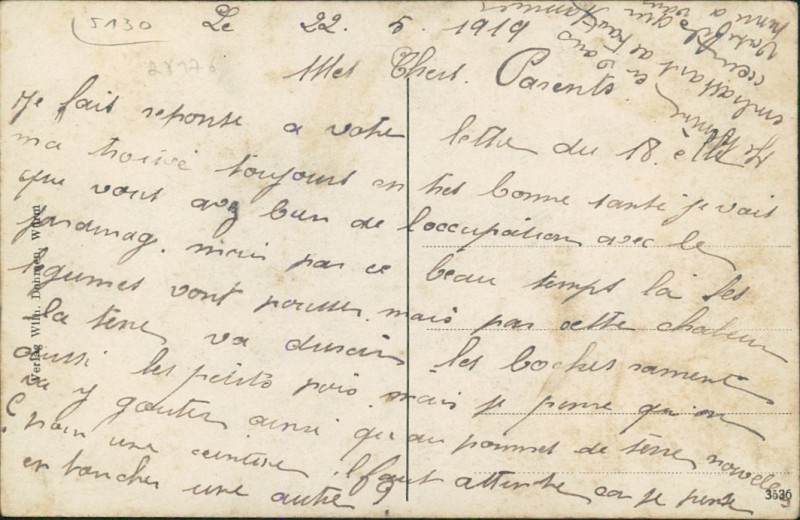 5130
Le 22. 5. 1919
28176
Mes Chers. Parents.
Je fait reponse a votre lettre du 18. elle
ma trouvé toujours en tres bonne santé je vois
que vous avez bien de l'occupation avec le
jardinage. mais par ce beau temps là les
legumes vont pousser. mais par cette chaleur
la terre va durcir les boches sament
aussi les petits pois mais je pense qu'on
va y gouter ainsi qu'au pommes de terre nouvelles
pour une ceinture il faut attendre car je pense
en toucher une autre
Je termine
embrassant de
en vous
Votre fils qui
pense a vous
Verlag Wilh. Worm
3536